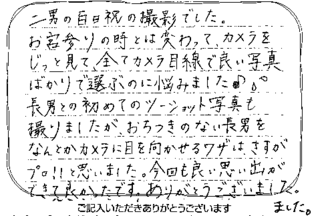 二男の百日祝の撮影でした。
お宮参りの時とは変わって、カメラを
じっと見て、全てカメラ目線で良い写真
ばかりで選ぶのに悩みました♪♪
長男との初めてのツーショット写真も
撮りましたが、おちつきのない長男を
なんとかカメラに目を向かせるワザはさすが
プロ!!と思いました。今回も良い思い出が
できて良かったです。ありがとうございました。
ご記入いただきありがとうございます
ました。